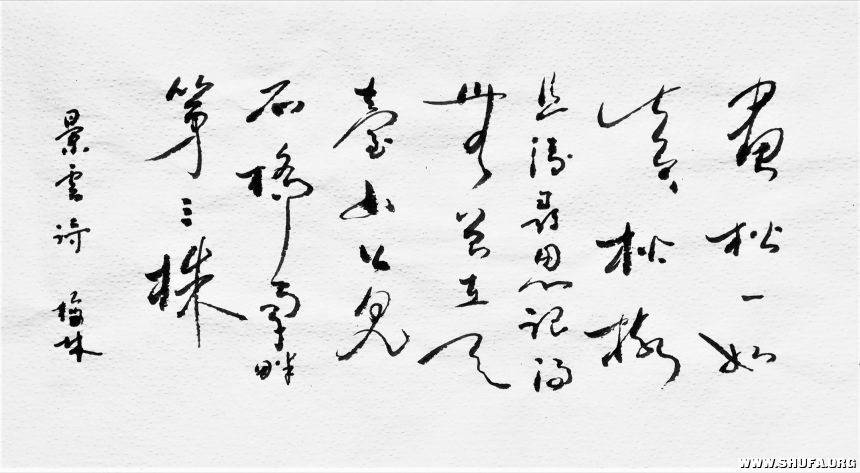 畫松一如
真松樹
且待尋思記得
無曾在天
臺山上見
石橋南畔
第三株
景雲詩
WWW.SHUFA.ORG